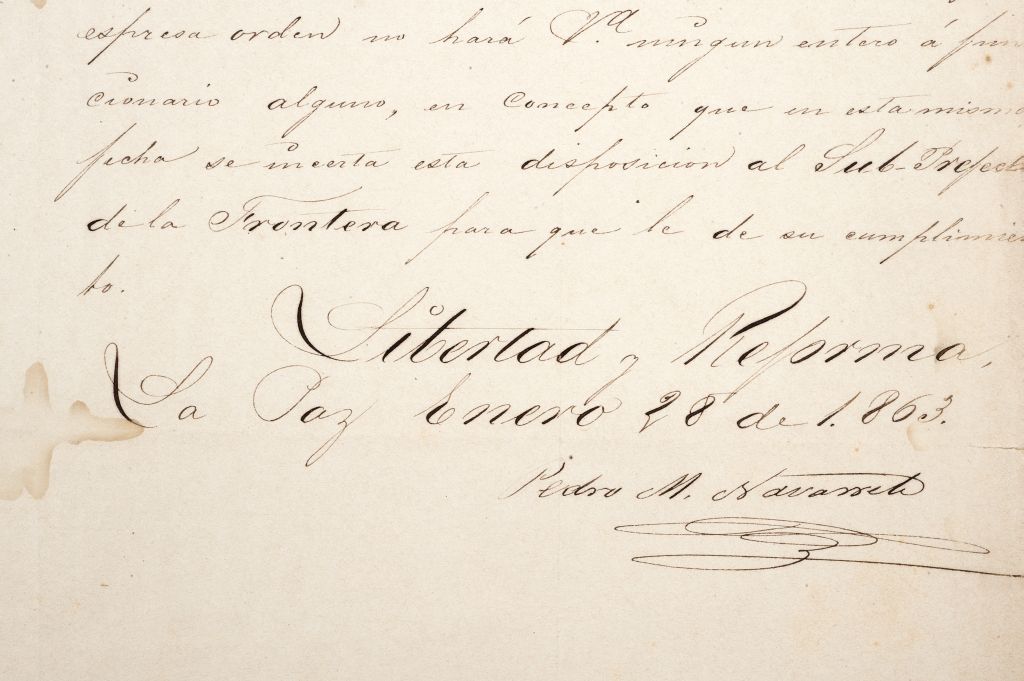 espresa orden no hará V.ª ningun entero á fun
cionario alguno, en concepto que en esta misma
fecha se incerta esta disposicion al Sub-Prefect
de la Frontera para que le de su cumplimien
to.
Libertad y Reforma,
La Paz Enero 28 de 1.863.
Pedro M. Navarrete